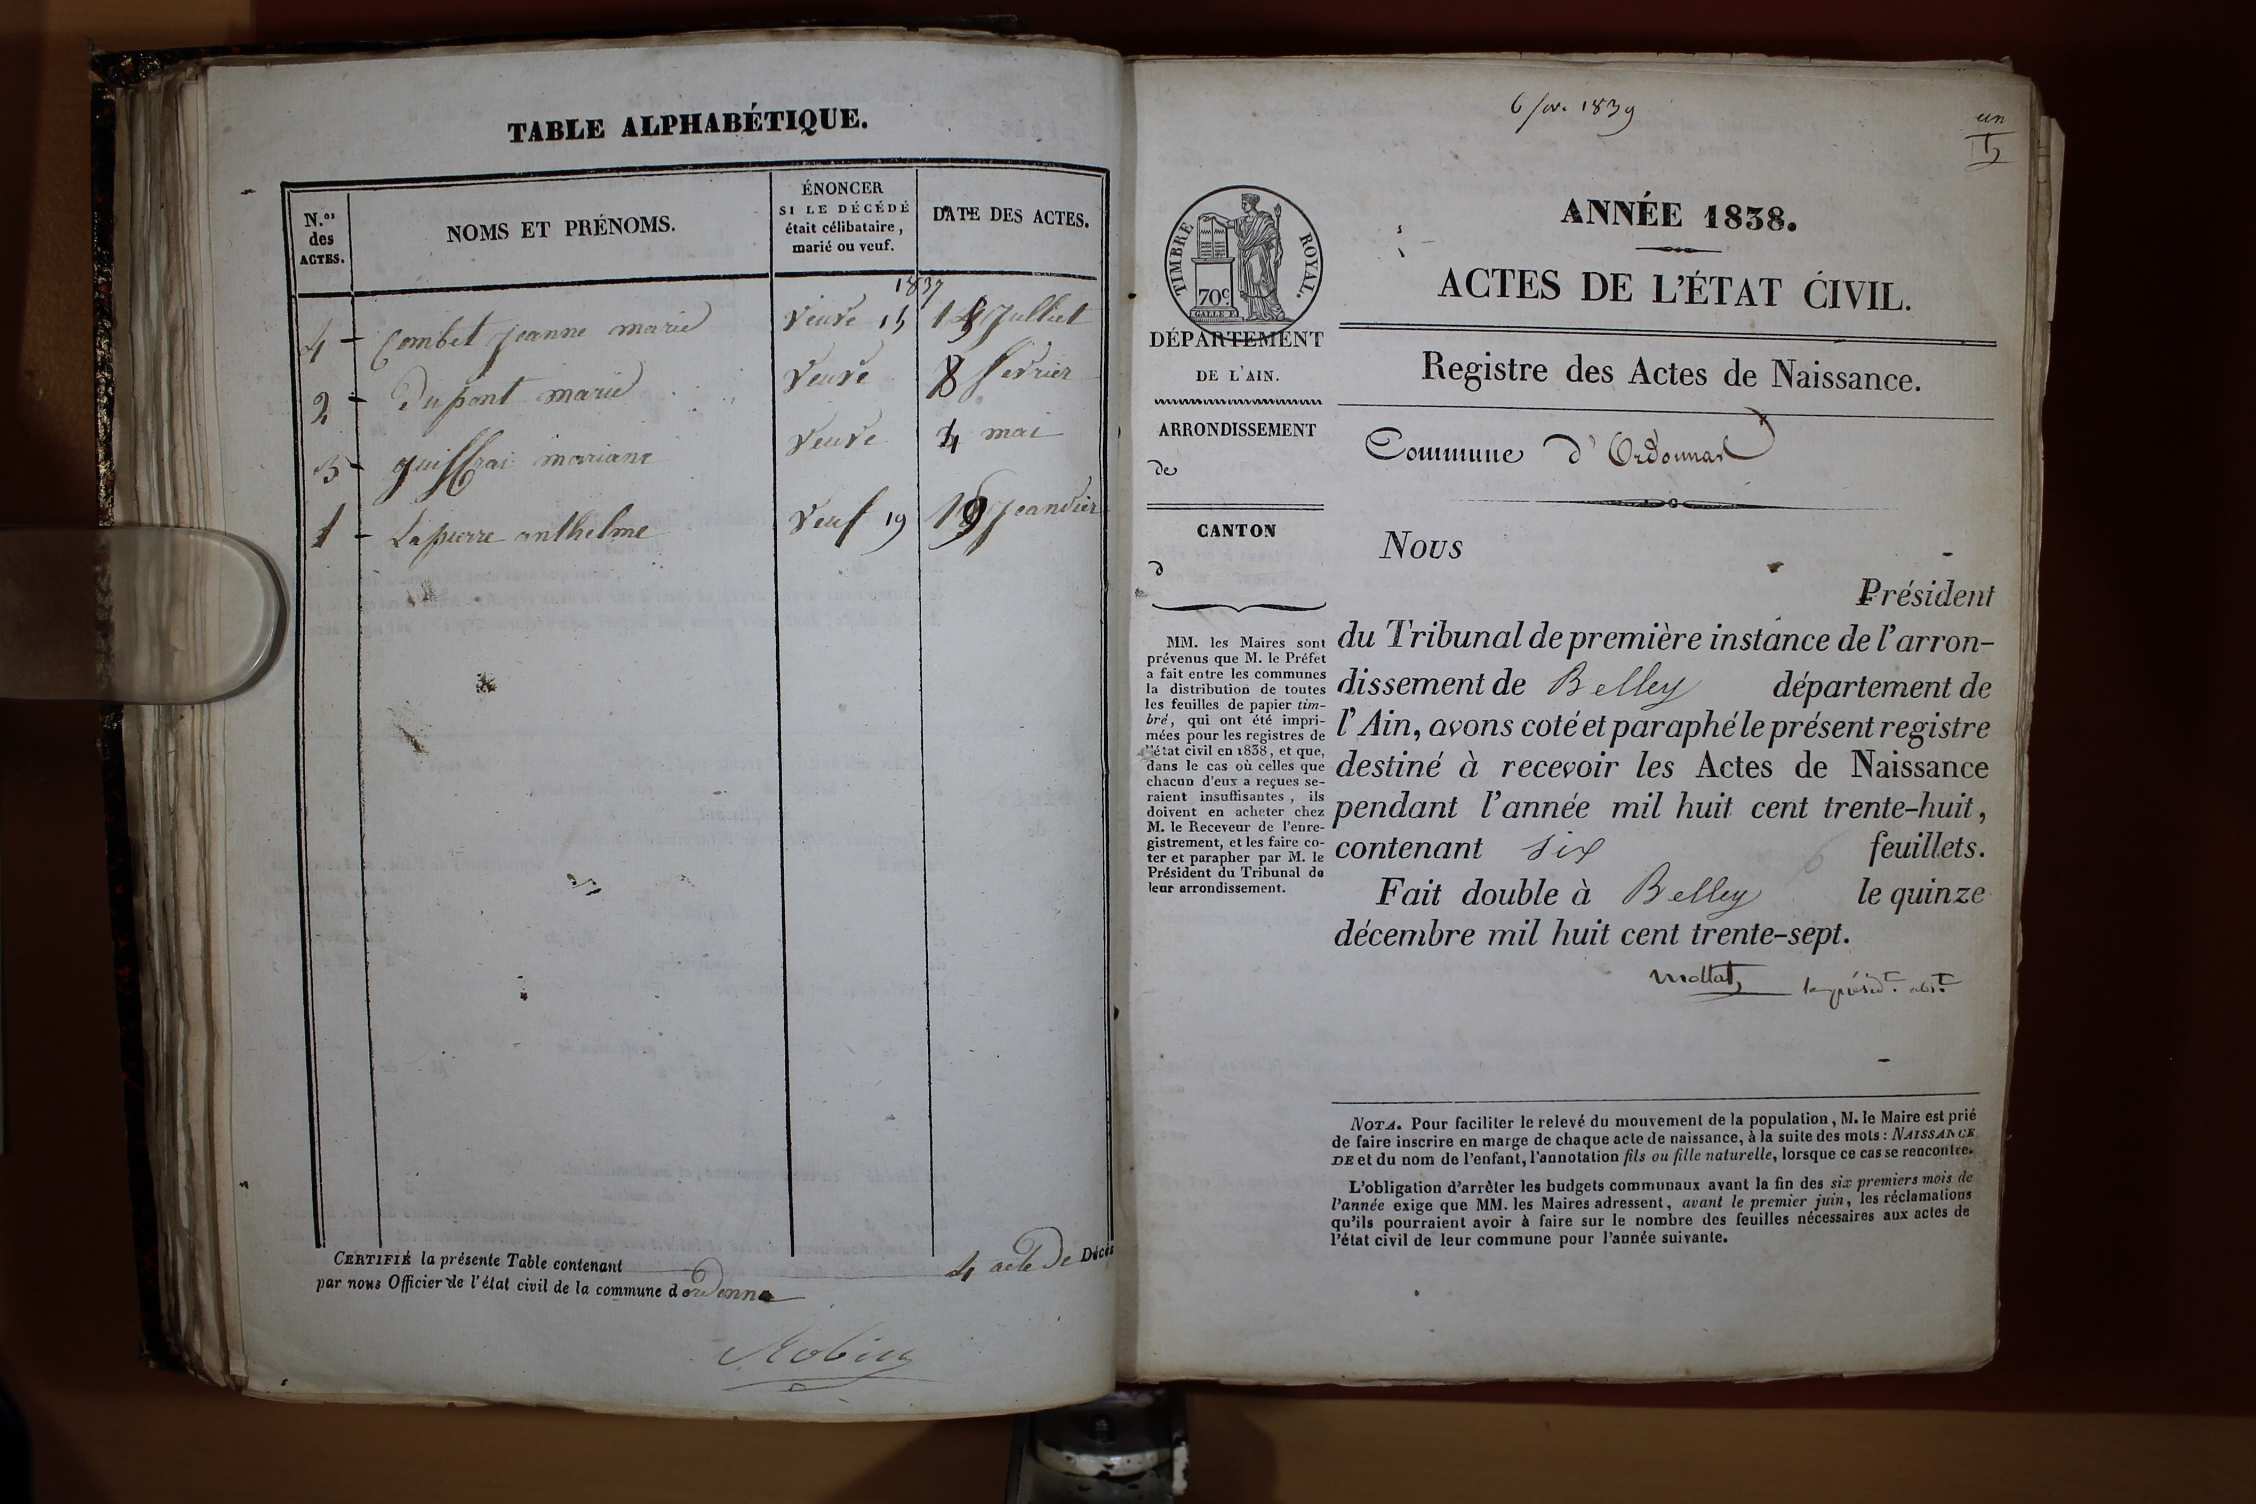 TABLE ALPHABÉTIQUE.
N.os des ACTES.
NOMS ET PRÉNOMS.
ÉNONCER
SI LE DÉCÉDÉ
était célibataire,
marié ou veuf.
DATE DES ACTES.
1837
4 - Combet jeanne marie veuve 15 Julliet
2 - Dupont marie veuve 8 fevrier
3 - mariane veuve 4 mai
1 - Lapierre anthelme veuf 19 19 jeanvier
CERTIFIÉ la présente Table contenant 4 acte de Décès
par nous Officier de l'état civil de la commune d ordonna
Robin
6 fev. 1839
un
ANNÉE 1838.
ACTES DE L'ÉTAT CIVIL.
TIMBRE ROYAL.
70c.
GALLE F.
DÉPARTEMENT
DE L'AIN.
ARRONDISSEMENT
de
CANTON
d
MM. les Maires sont
prévenus que M. le Préfet
a fait entre les communes
la distribution de toutes
les feuilles de papier tim-
bré, qui ont été impri-
mées pour les registres de
l'état civil en 1838, et que,
dans le cas où celles que
chacun d'eux a reçues se-
raient insuffisantes, ils
doivent en acheter chez
M. le Receveur de l'enre-
gistrement, et les faire co-
ter et parapher par M. le
Président du Tribunal de
leur arrondissement.
Registre des Actes de Naissance.
Commune d'Ordonnas
Nous
Président
du Tribunal de première instance de l'arron-
dissement de Belley département de
l'Ain, avons coté et paraphé le présent registre
destiné à recevoir les Actes de Naissance
pendant l'année mil huit cent trente-huit,
contenant six 6 feuillets.
Fait double à Belley le quinze
décembre mil huit cent trente-sept.
Mollat, le présidt. abst.
NOTA. Pour faciliter le relevé du mouvement de la population, M. le Maire est prié
de faire inscrire en marge de chaque acte de naissance, à la suite des mots: NAISSANCE
DE et du nom de l'enfant, l'annotation fils ou fille naturelle, lorsque ce cas se rencontre.
L'obligation d'arrêter les budgets communaux avant la fin des six premiers mois de
l'année exige que MM. les Maires adressent, avant le premier juin, les réclamations
qu'ils pourraient avoir à faire sur le nombre des feuilles nécessaires aux actes de
l'état civil de leur commune pour l'année suivante.